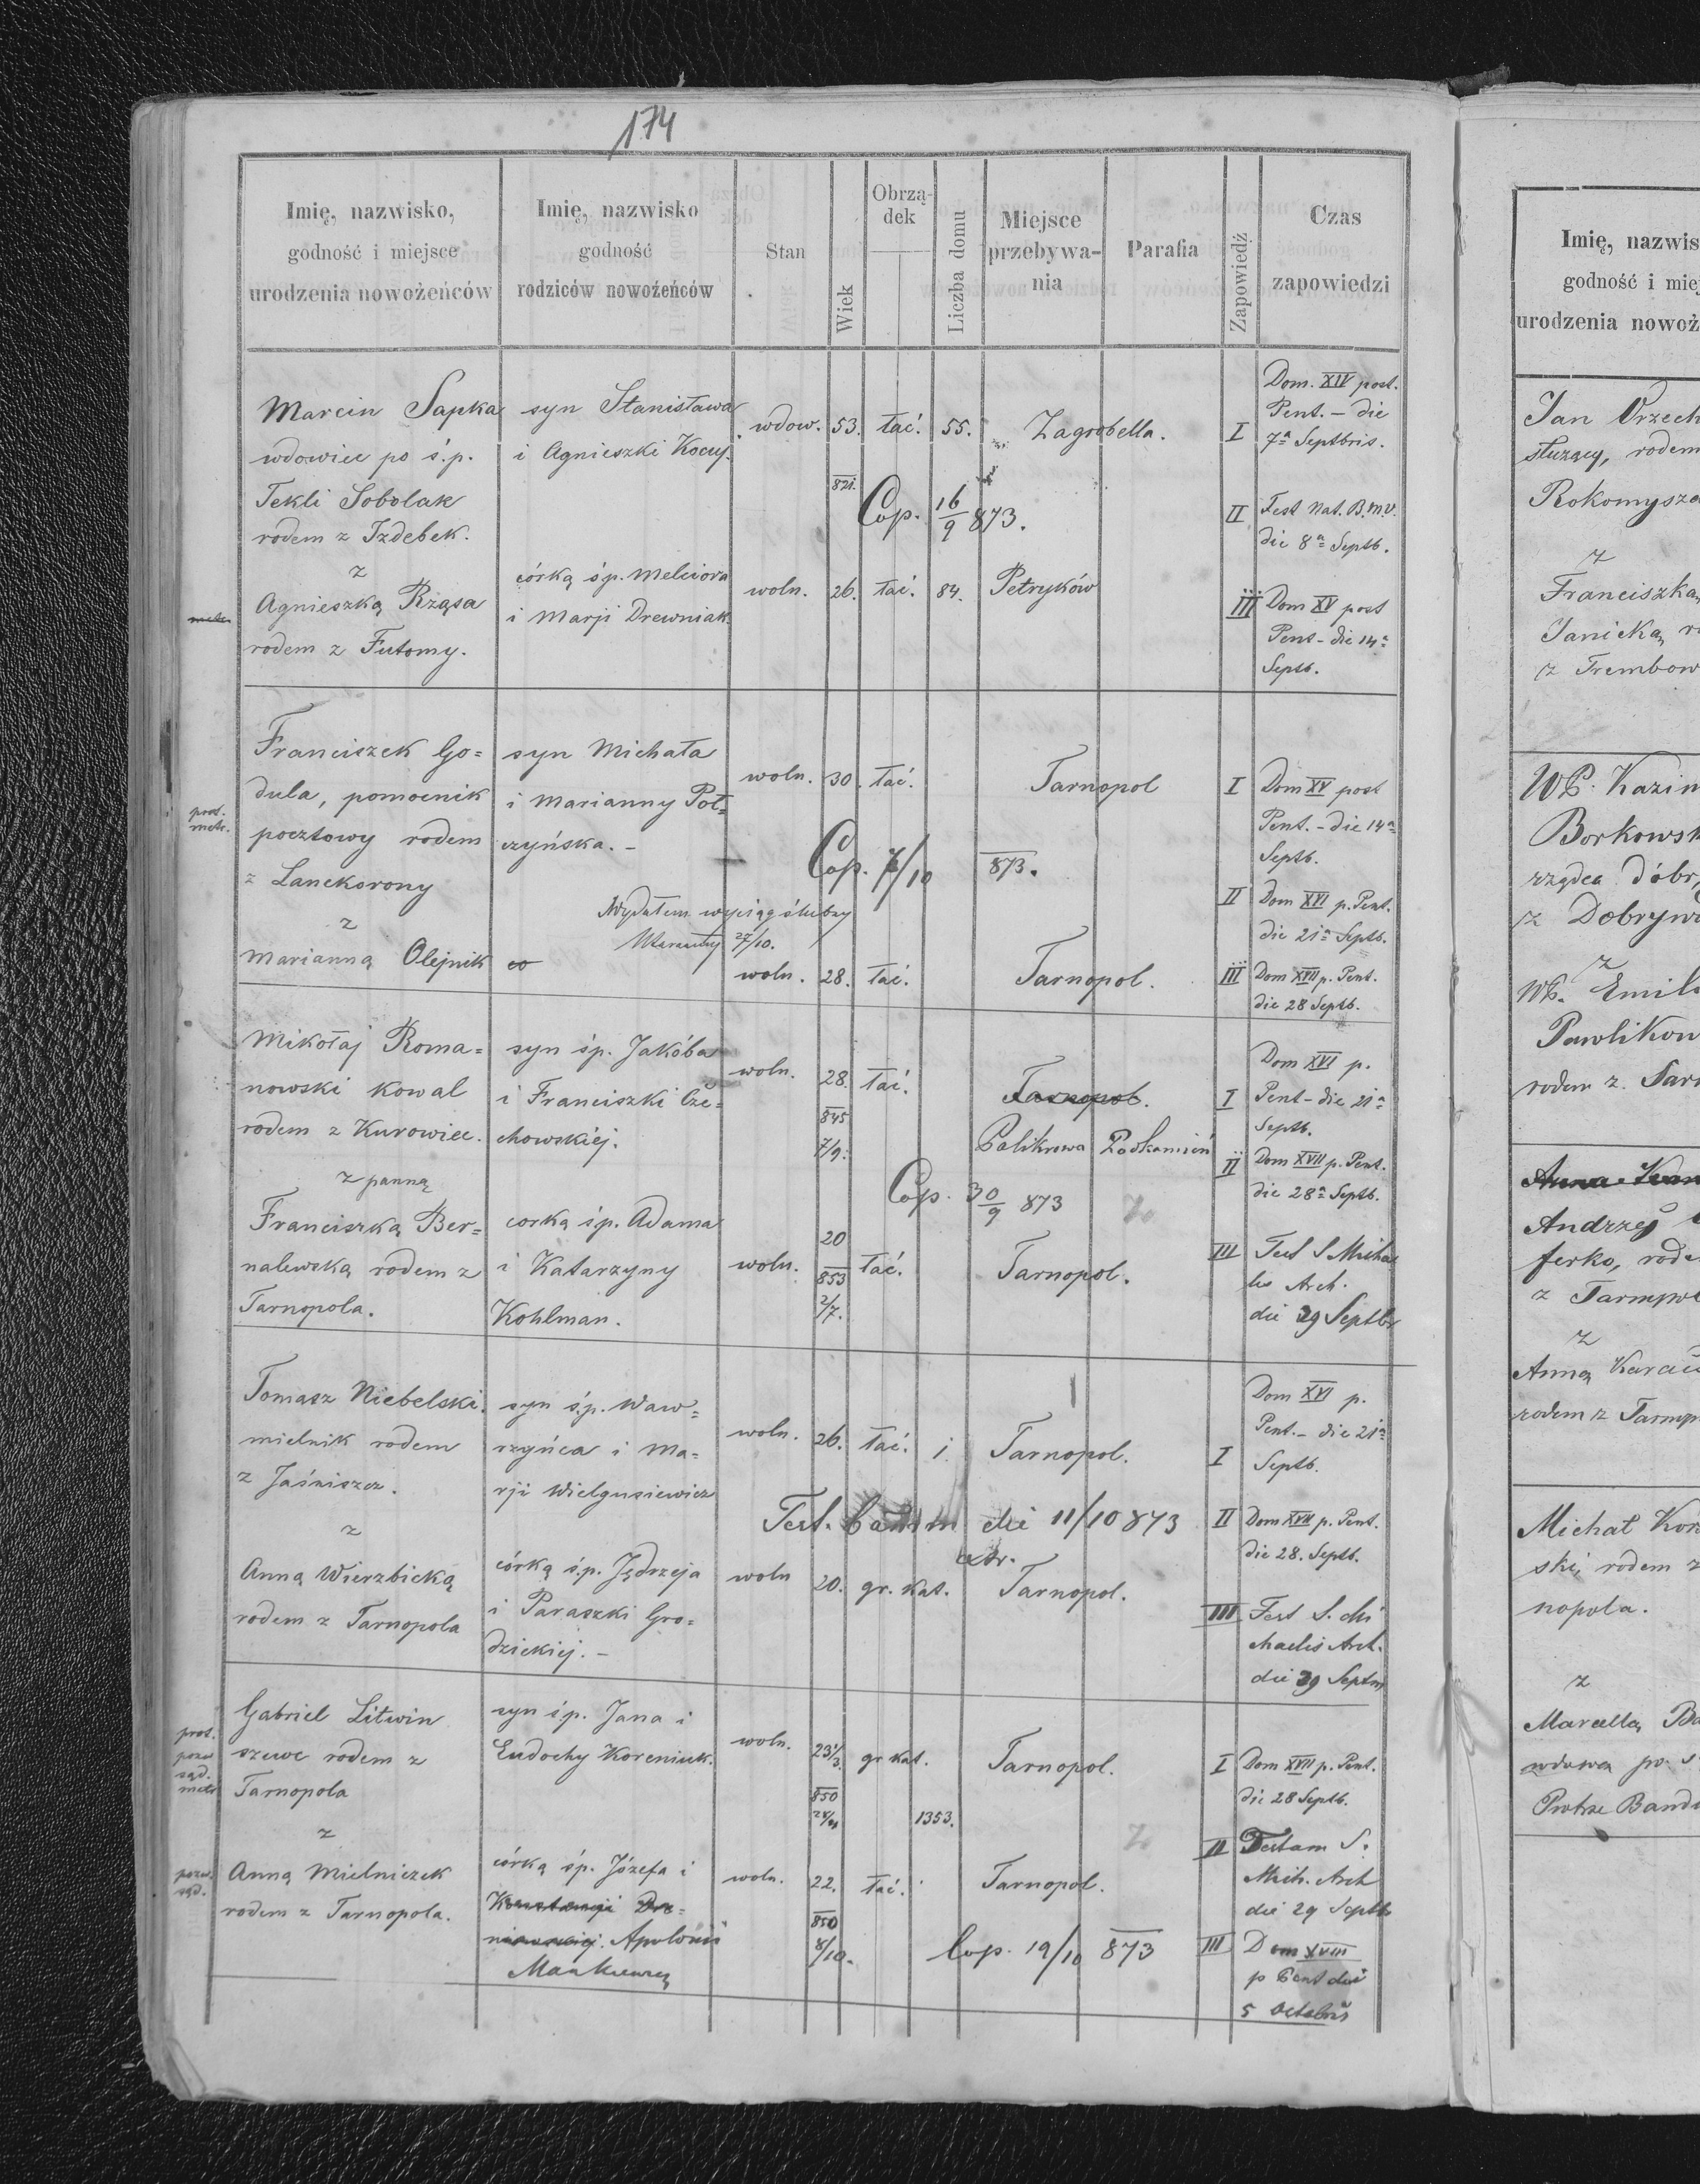 174
Imię, nazwisko,
godność i miejsce
urodzenia nowożeńców
Imię, nazwisko
godność
rodziców nowożeńców
Stan
Wiek
Obrzą-
dek
Liczba domu
Miejsce
przebywa-
nia
Parafia
Zapowiedź
Czas
zapowiedzi
Marcin Sapka
wdowiec po ś.p.
Tekli Sobolak
rodem z Izdebek.
z
Agnieszką Rząsa
rodem z Futomy.
syn Stanisława
i Agnieszki Kocuj.
córką śp. Melciora
i Marji Drewniak.
wdow. 53. łać. 55. Zagrobella.
821.
Cop. 16/9 873.
woln. 26. łać. 84. Petryków
I
Dom. XIV post.
Pent. - die
7ª Septbris.
II
Fest Nat. B.M.V.
die 8ª Septb.
III
Dom XV post
Pent - die 14ª
Septb.
prot.
metr.
Franciszek Go=
dula, pomocnik
pocztowy rodem
z Lanckorony
z
Marianną Olejnik
syn Michała
i Marianny Poł=
czyńska. -
Wydałem wyciąg ślubny
27/10.
woln. 30. łać. Tarnopol
Cop. 7/10 873.
woln. 28. łać. Tarnopol.
I
Dom XV post
Pent. - die 14ª
Septb.
II
Dom XVI p. Pent.
die 21ª Septb.
III
Dom XVII p. Pent.
die 28 Septb.
Mikołaj Roma=
nowski kowal
rodem z Kurowiec.
z panną
Franciszką Ber=
nalewską rodem z
Tarnopola.
syn śp. Jakóba
i Franciszki Cze=
chowskiéj.
corką śp. Adama
i Katarzyny
Kohlman.
woln. 28. łać. Tarnopol.
845
7/9.
Palikrowa Podkamień
Cop. 30/9 873
20
woln. 853 łać. Tarnopol.
2/7.
I
Dom XVI p.
Pent - die 21ª
Septb.
II
Dom XVII p. Pent.
die 28ª Septb.
III
Fest S Micha
lis Arch.
die 29 Septbr
Tomasz Niebelski.
mielnik rodem
z Jaśniszcz.
z
Anną Wierzbicką
rodem z Tarnopola
syn ś.p. Waw=
rzyńca i Ma=
rji Wielgusiewicz
córką ś.p. Jędrzeja
i Paraszki Gro=
dzickiej. -
woln. 26. łać. 1. Tarnopol.
Test. die 11/10 873
woln 20. gr. kat. Tarnopol.
I
Dom XVI p.
Pent. - die 21ª
Septb.
II
Dom XVII p. Pent.
die 28. Septb.
III
Fest S. Mi
chaelis Arch.
die 29 Septm
prot.
pozw
sąd.
metr
Gabriel Litwin
szewc rodem z
Tarnopola
z
pozw.
sąd.
Anną Mielniczek
rodem z Tarnopola.
syn ś.p. Jana i
Eudochy Koreniuk.
córką śp. Józefa i
Konstancji
Apolonii
woln. 23 1/3. gr kat. Tarnopol.
850
1353.
woln. 22. łać. Tarnopol.
850
8/10.
Cop. 19/10 873
I
Dom XVII p. Pent.
die 28 Septb.
II
Festam S.
Mich. Arch
die 29 Septb
III
Dom XVIII
p Pent die
5 Octobris
Imię, nazwis
godność i miej
urodzenia nowoż
Jan Orzech
służący, rodem
Rokomysza
z
Franciszką
Janicką ro
z Trembow
WP. Kazim
Borkowsk
rządca dóbr,
z Dobrywo
z
WP. Emili
Pawlikow
rodem z Tarn
Andrzej
ferko, rode
z Tarnopol
z
Anną Karac
rodem z Tarnop
Michał Kor
ski, rodem z
nopola.
z
Marcellą Ba
wdowa po ś
Piotrze Band